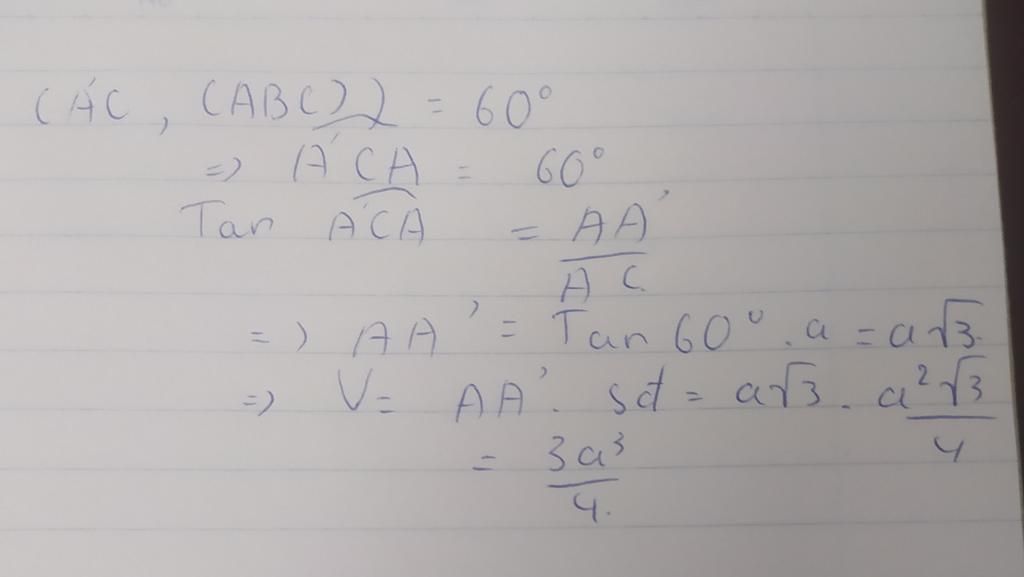 (A'C, (ABC)) = 60°
=> A'CA = 60°
Tan A'CA = AA' / AC
=> AA' = Tan 60° . a = a√3.
=> V = AA' . Sd = a√3 . a²√3 / 4
= 3a³ / 4.